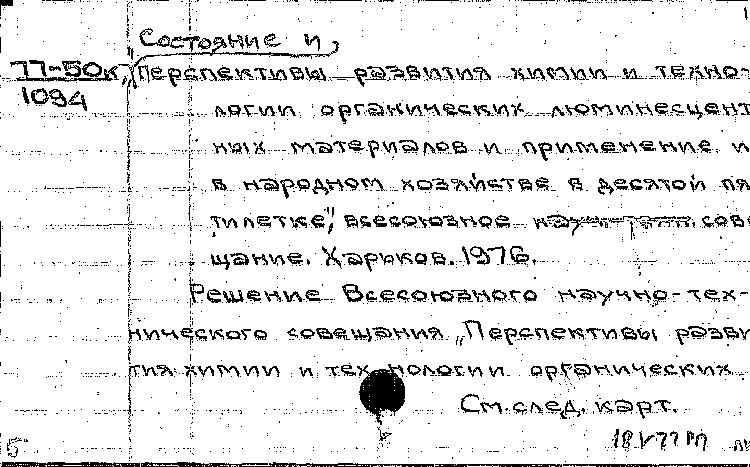 Состояние и
77-50к „Перспективы развития химии и техно-
1094
логии органических люминесцент
ных материалов и применение и
в народном хозяйстве в десятой пя
тилетке", всесоюзное научн.-техн. сове
щание. Харьков. 1976.
Решение Всесоюзного научно-тех-
нического совещания „Перспективы разви
тия химии и технологии органических
См. след. карт.
18 V 77 М
5